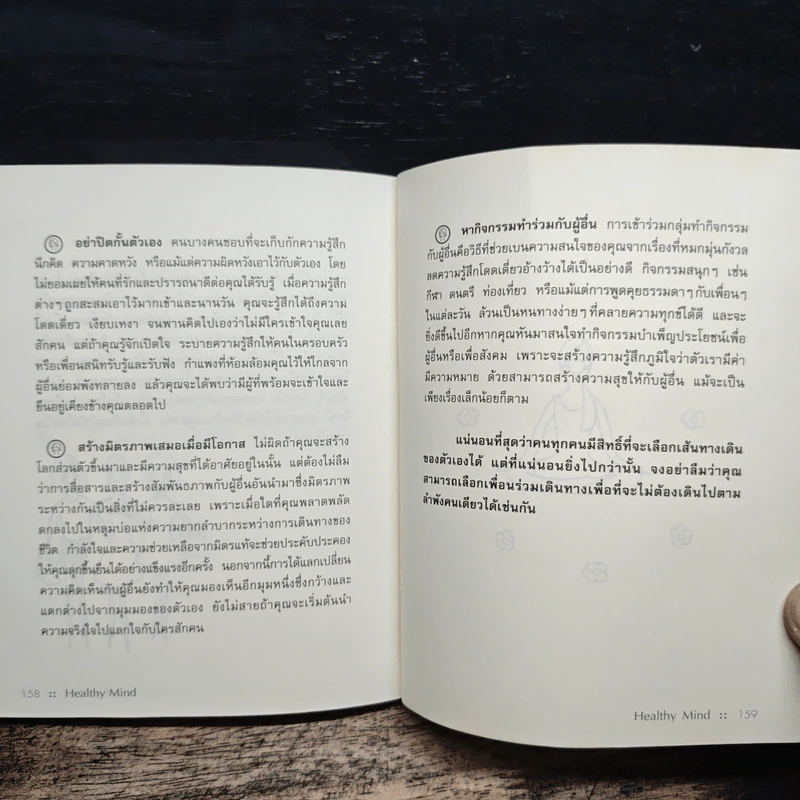 อย่าปิดกั้นตัวเอง คนบางคนชอบที่จะเก็บกักความรู้สึก
นึกคิด ความคาดหวัง หรือแม้แต่ความผิดหวังเอาไว้กับตัวเอง โดย
ไม่ยอมเผยให้คนที่รักและปรารถนาดีต่อคุณได้รับรู้ เมื่อความรู้สึก
ต่างๆ ถูกสะสมเอาไว้มากเข้าและนานวัน คุณจะรู้สึกได้ถึงความ
โดดเดี่ยว เงียบเหงา จนพานคิดไปเองว่าไม่มีใครเข้าใจคุณเลย
สักคน แต่ถ้าคุณรู้จักเปิดใจ ระบายความรู้สึกให้คนในครอบครัว
หรือเพื่อนสนิทรับรู้และรับฟัง กำแพงที่ห้อมล้อมคุณไว้ให้ไกลจาก
ผู้อื่นย่อมพังทลายลง แล้วคุณจะได้พบว่ามีผู้ที่พร้อมจะเข้าใจและ
ยืนอยู่เคียงข้างคุณตลอดไป
สร้างมิตรภาพเสมอเมื่อมีโอกาส ไม่ผิดถ้าคุณจะสร้าง
โลกส่วนตัวขึ้นมาและมีความสุขที่ได้อาศัยอยู่ในนั้น แต่ต้องไม่ลืม
ว่าการสื่อสารและสร้างสัมพันธภาพกับผู้อื่นอันนำมาซึ่งมิตรภาพ
ระหว่างกันเป็นสิ่งที่ไม่ควรละเลย เพราะเมื่อใดที่คุณพลาดพลัด
ตกลงไปในหลุมบ่อแห่งความยากลำบากระหว่างการเดินทางของ
ชีวิต กำลังใจและความช่วยเหลือจากมิตรแท้จะช่วยประคับประคอง
ให้คุณลุกขึ้นยืนได้อย่างแข็งแรงอีกครั้ง นอกจากนี้การได้แลกเปลี่ยน
ความคิดเห็นกับผู้อื่นยังทำให้คุณมองเห็นอีกมุมหนึ่งซึ่งกว้างและ
แตกต่างไปจากมุมมองของตัวเอง ยังไม่สายถ้าคุณจะเริ่มต้นนำ
ความจริงใจไปแลกใจกับใครสักคน
158 :: Healthy Mind
หากิจกรรมทำร่วมกับผู้อื่น การเข้าร่วมกลุ่มทำกิจกรรม
กับผู้อื่นคือวิธีที่ช่วยเบนความสนใจของคุณจากเรื่องที่หมกมุ่นกังวล
ลดความรู้สึกโดดเดี่ยวอ้างว้างได้เป็นอย่างดี กิจกรรมสนุกๆ เช่น
กีฬา ดนตรี ท่องเที่ยว หรือแม้แต่การพูดคุยธรรมดาๆ กับเพื่อนๆ
ในแต่ละวัน ล้วนเป็นหนทางง่ายๆ ที่คลายความทุกข์ได้ดี และจะ
ยิ่งดีขึ้นไปอีกหากคุณหันมาสนใจทำกิจกรรมบำเพ็ญประโยชน์เพื่อ
ผู้อื่นหรือเพื่อสังคม เพราะจะสร้างความรู้สึกภูมิใจว่าตัวเรามีค่า
มีความหมาย ด้วยสามารถสร้างความสุขให้กับผู้อื่น แม้จะเป็น
เพียงเรื่องเล็กน้อยก็ตาม
แน่นอนที่สุดว่าคนทุกคนมีสิทธิ์ที่จะเลือกเส้นทางเดิน
ของตัวเองได้ แต่ที่แน่นอนยิ่งไปกว่านั้น จงอย่าลืมว่าคุณ
สามารถเลือกเพื่อนร่วมเดินทางเพื่อที่จะไม่ต้องเดินไปตาม
ลำพังคนเดียวได้เช่นกัน
Healthy Mind :: 159